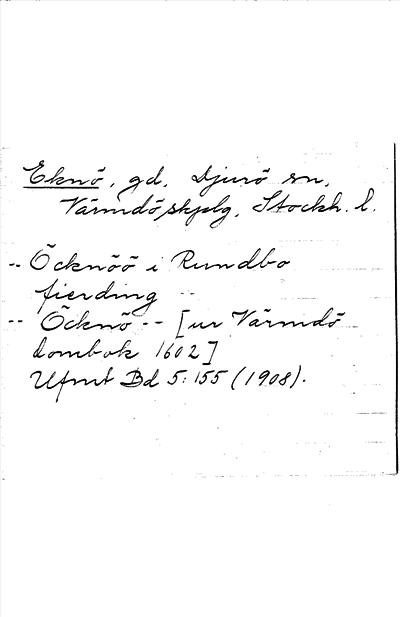 Eknö, gd, Djurö sn,
Värmdö skplg, Stockh. l.
-- Öcknöö i Rundbo
fierding --
-- Öcknö -- [ur Värmdö
dombok 1602]
Ufmt Bd 5: 155 (1908).